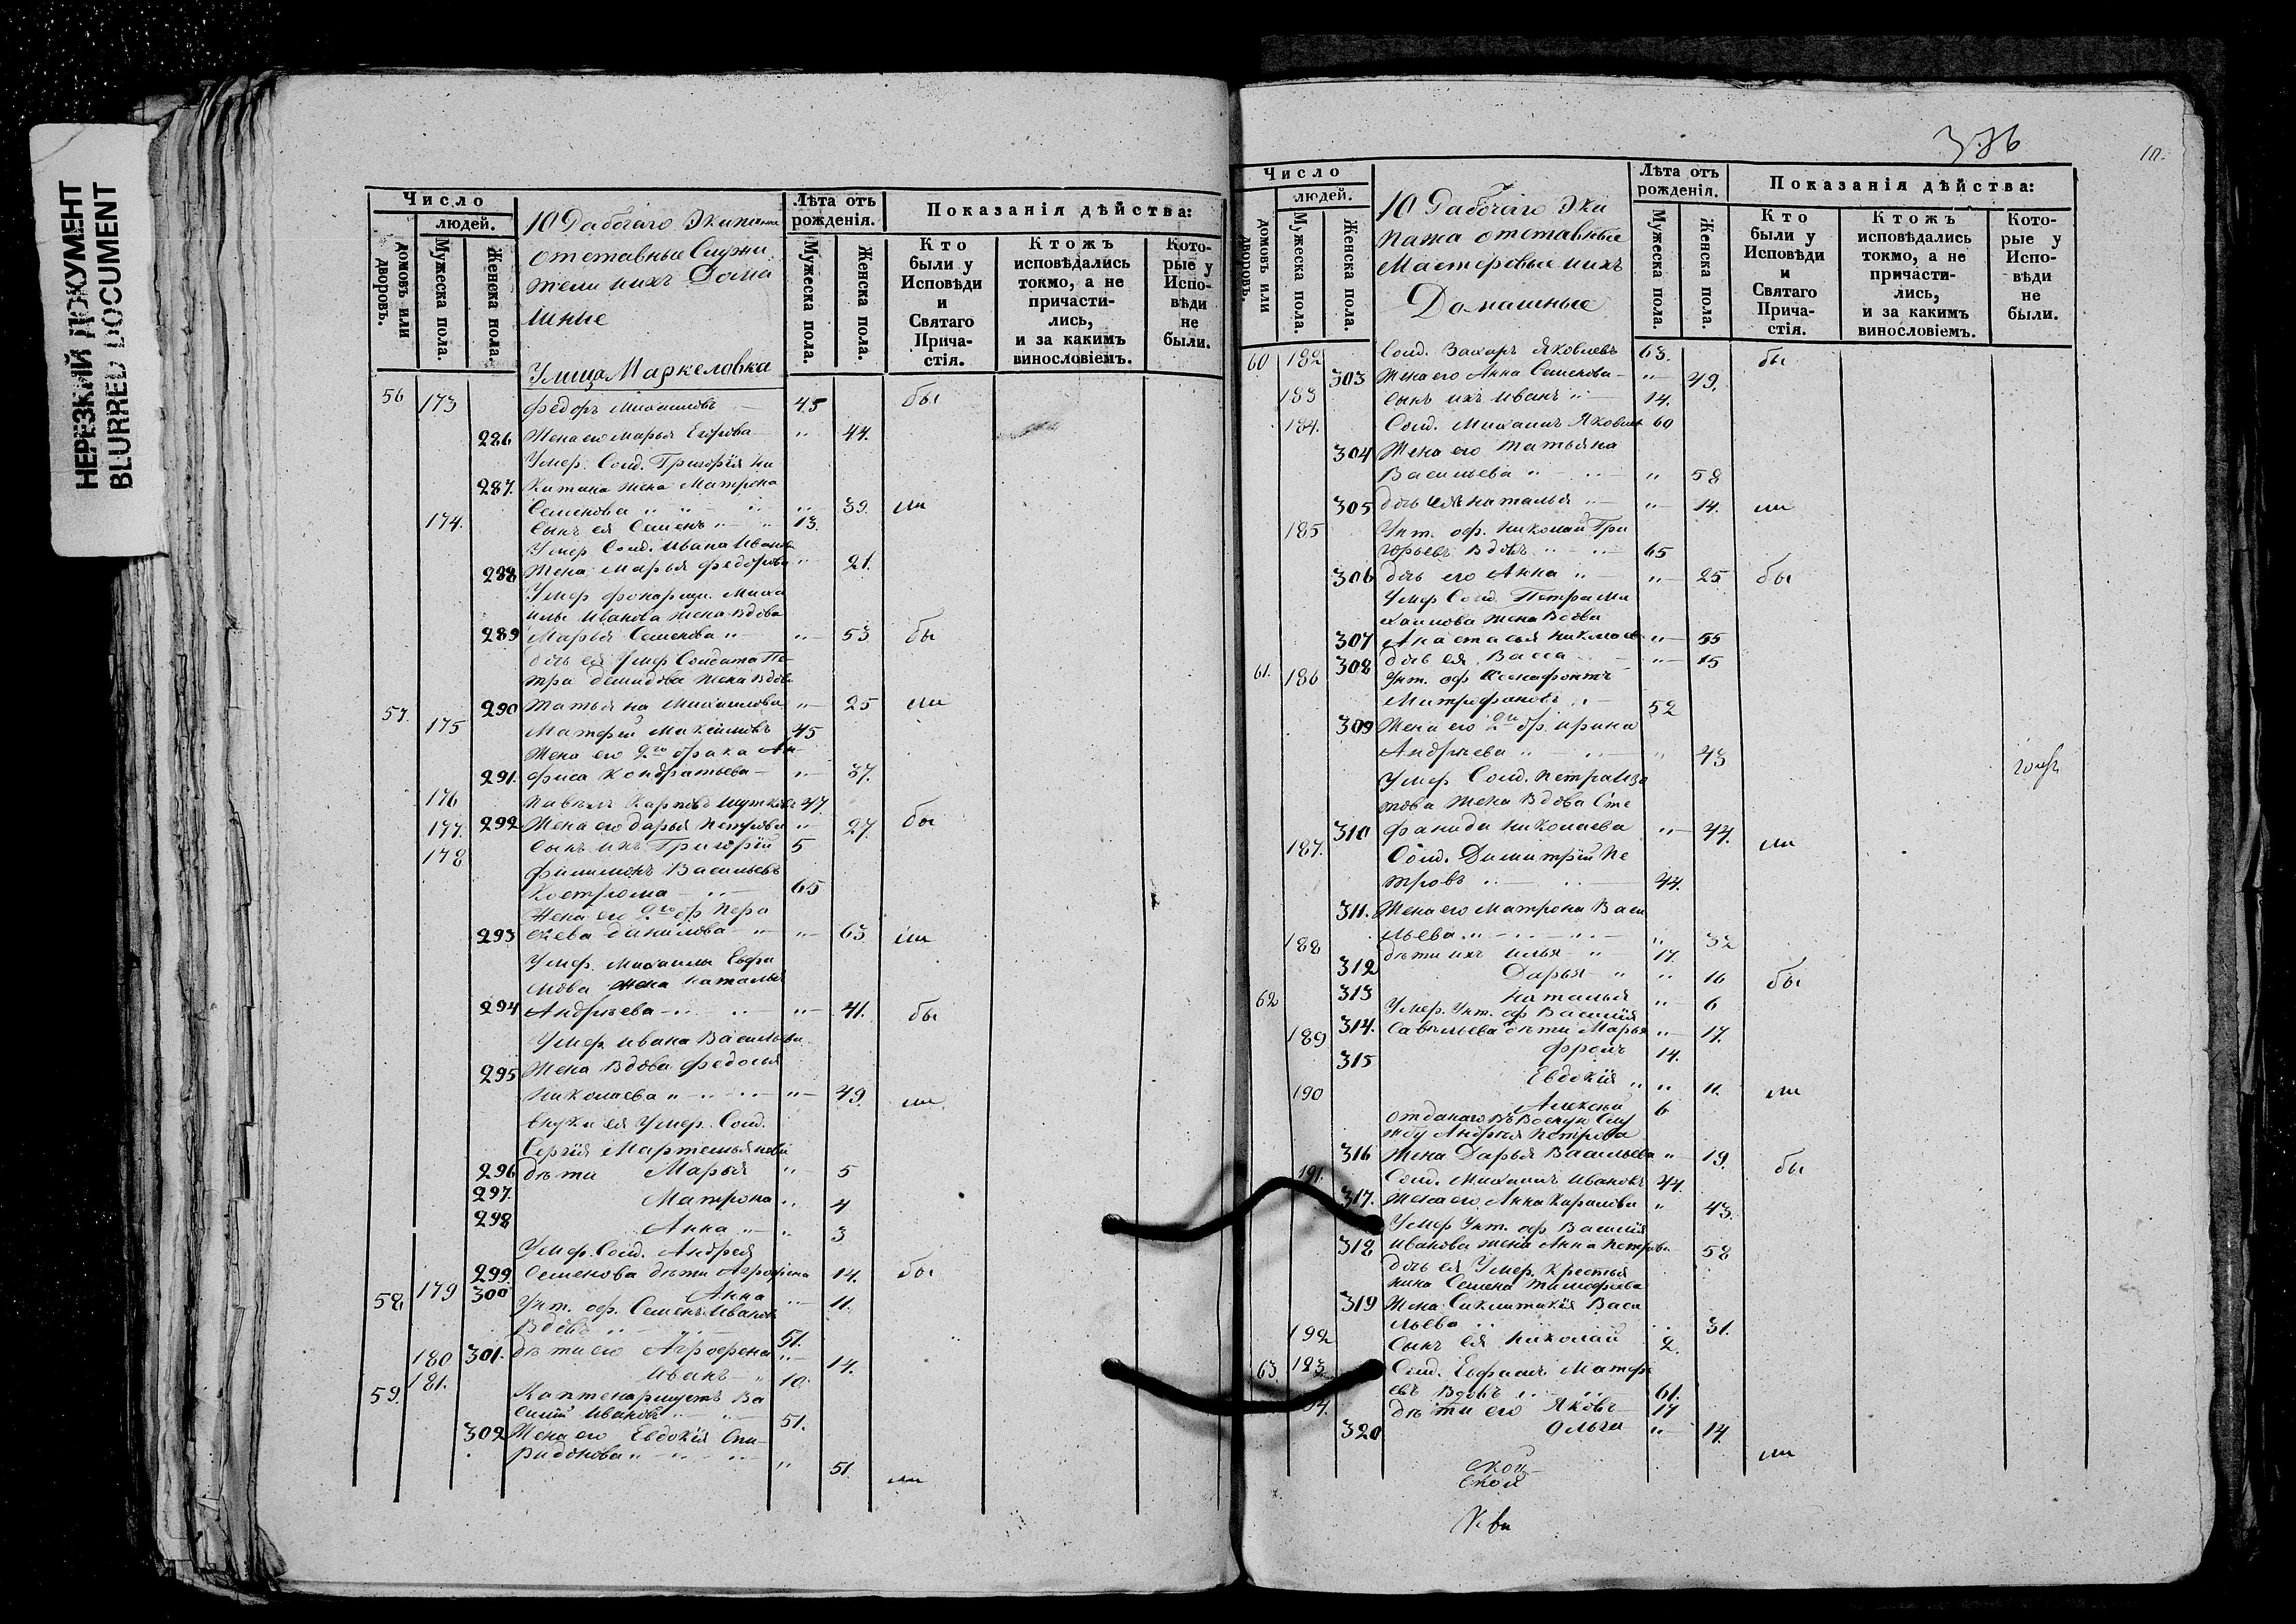 НЕРЕЗКИЙ ДОКУМЕНТ
BLURRED DOCUMENT
Число
людей.
домовъ или дворовъ.
Мужеска пола.
Женска пола.
10 Рабочаго Экипажа
отставные Служи
тели ихъ Дома
шные
Улица Маркеловка
Лѣта отъ рожденія.
Мужеска пола.
Женска пола.
Показанія дѣйства:
Кто были у Исповѣди и Святаго Причастія.
Ктожъ исповѣдались токмо, а не причастились, и за какимъ винословіемъ.
Которые у Исповѣди не были.
56 173 Федоръ Михаиловъ 45 бы
286 Жена его Марья Егорова " 44.
Умер. Солд. Григорія Ни
287. китина жена Матрона
Семенова " " 39. ли
174. Сынъ ея Семенъ " 13.
Умер Солд. Ивана Иванова
288 Жена Марья Федорова " 21.
Умер
Ивanова жена Вдова
289 Марья Семенова " " 53 бы
дочь ея Умер Солдата Пе
тра Демидова жена Вдова
290 Татьяна Михаилова " 25 ли
57. 175 Матфей Максимовъ 45
Жена его 2го брака Ан
291. фиса Кондратьева " 37.
176 Павелъ Карповъ 47.
177. 292 Жена его Дарья Петрова " 27 бы
178 Сынъ ихъ Григорій 5
Филимонъ Васильевъ
Кострома 65
Жена его 2го бр Пара
293 скева Данилова " " 63 ли
Умер. Михаила Ефи
мова жена Наталья
294 Андреева " 41. бы
Умер Ивана Васильева
295 Жена Вдова Федосья
Николаева " " 49. ли
внуки ея Умер. Солд.
Сергія Мартемьянова
296 дѣти Марья " 5
297. Матрона " 4
298 Анна " " 3
Умер. Солд. Андрея
299. Семенова дѣти Агрофена 14. бы
58 179 300 Анна " 11.
Унт. оф. Семенъ Ивановъ
Вдовъ " 51.
180 301. дѣти его Агрофена " 14.
181. Иванъ " 10.
59. Каптенармусъ Ва
силій Ивановъ 51.
302 Жена его Евдокія Спи
ридонова " " 51. ли
376
10.
Число
людей.
домовъ или дворовъ.
Мужеска пола.
Женска пола.
10 Рабочаго Эки
пажа отставные
Мастеровые ихъ
Домашные
Лѣта отъ рожденія.
Мужеска пола.
Женска пола.
Показанія дѣйства:
Кто были у Исповѣди и Святаго Причастія.
Ктожъ исповѣдались токмо, а не причастились, и за какимъ винословіемъ.
Которые у Исповѣди не были.
60 182 Солд. Захаръ Яковлевъ 63. бы
303 Жена его Анна Семенова " 49.
183 Сынъ ихъ Иванъ " 14.
184. Солд. Михаилъ Яковлевъ 60
304 Жена его Татьяна
Васильева " " 58
305 дочь ихъ Наталья " 14. ли
185 Унт. оф. Николай Гри
горьевъ Вдовъ " 65
306 дочь его Анна " " 25 бы
Умер Солд. Петра Ми
хаилова жена Вдова
307 Анастасья Николаева " 55
308 дочь ея Васса " 15
61. 186 Унт. оф Ксенофонтъ
Митрофановъ " 52
309 Жена его 2го бр. Ирина
Андреева " " 43
Умер Солд. Петра Изо
това жена Вдова Сте
310 фанида Николаева " 44. ли
187. Солд. Димитрій Пе
тровъ " 44.
311. Жена его Матрона Васи
льева " " 32
188 дѣти ихъ Илья " 17.
312 Дарья " " 16 бы
313 Наталья " 6
62 Умер. Унт. оф Василія
314. Савельева дѣти Марья " 17.
189 Фролъ 14.
315 Евдокія " " 11. ли
190 Алексѣй 6
отданаго въ Военую Слу
жбу Андрея Петрова
316 Жена Дарья Васильева " 19. бы
191. Солд. Михаилъ Ивановъ 44.
317. Жена его Анна " 43.
Умер Унт. оф Василія
318 Иванова жена Анна Петрова 58
дочь ея Умер. Крестья
нина Семена Тимофеева
319 Жена Синклитикія Васи
льева " 31.
192 Сынъ ея Николай 2.
63. 193 Солд. Ефимъ Матфе
евъ Вдовъ " 61.
94. дѣти его Яковъ 17
320 Ольга " 14. ли